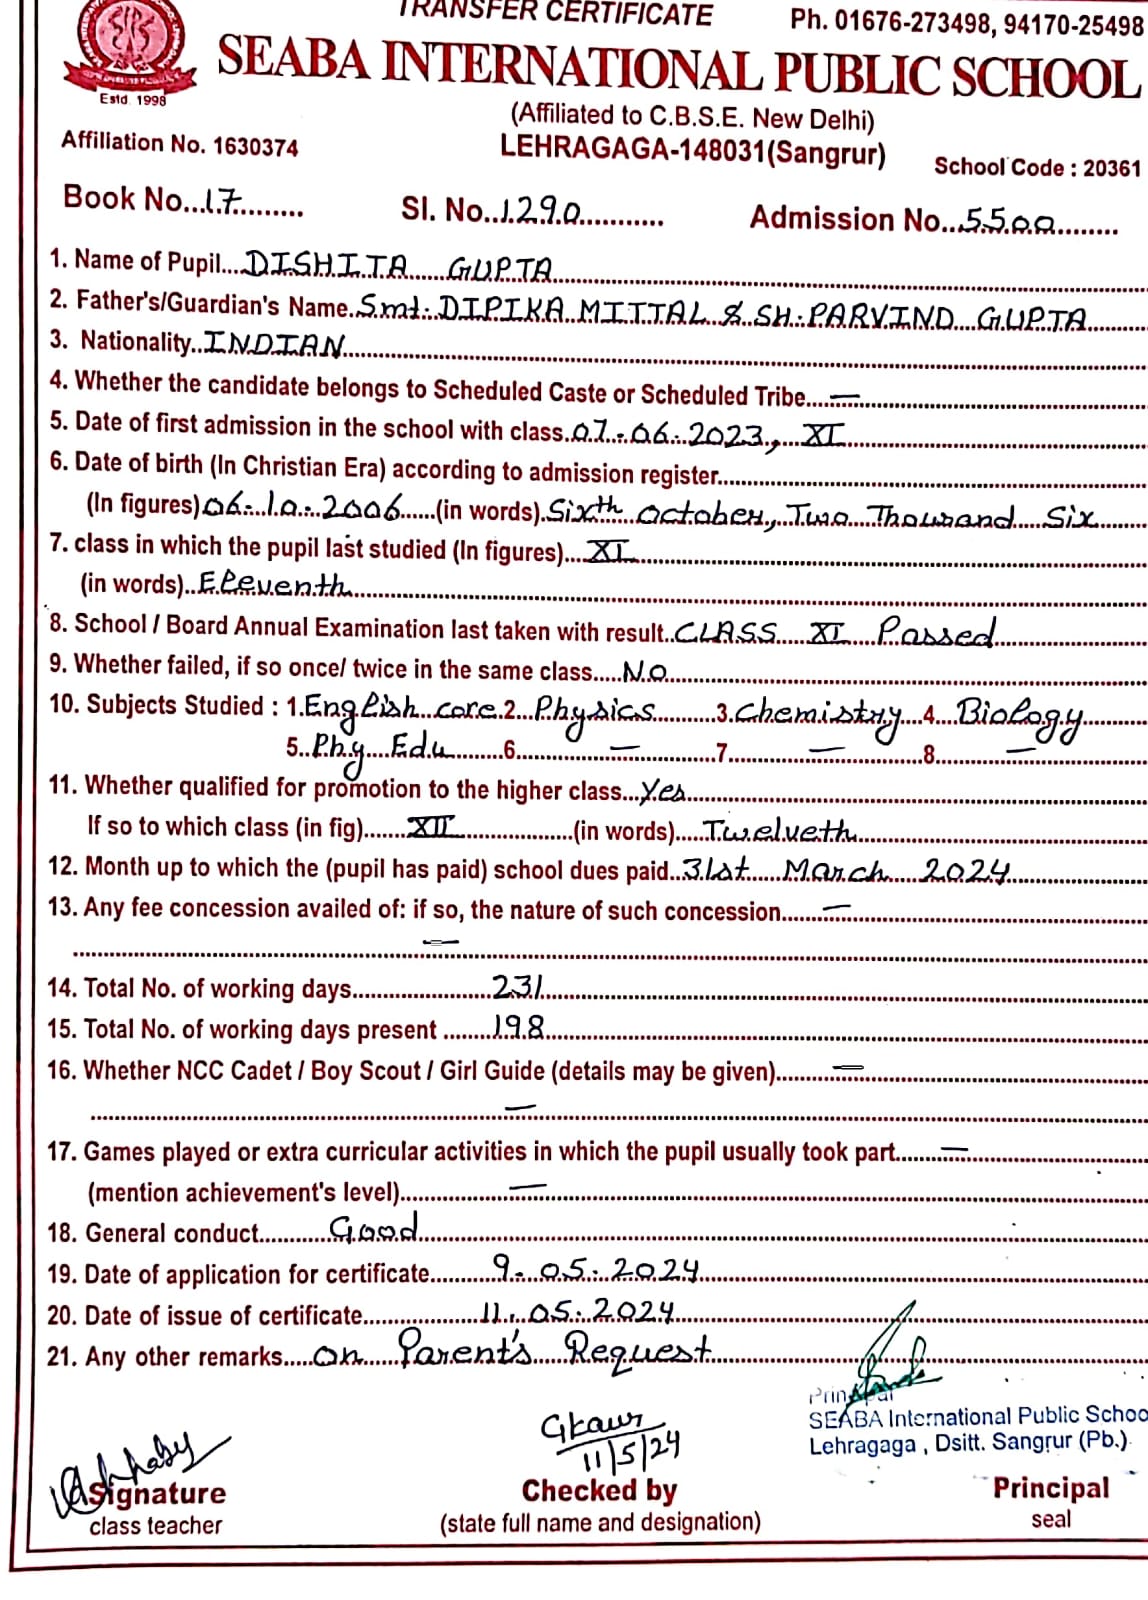 TRANSFER CERTIFICATE Ph. 01676-273498, 94170-25498
SEABA INTERNATIONAL PUBLIC SCHOOL
Estd. 1998
(Affiliated to C.B.S.E. New Delhi)
Affiliation No. 1630374 LEHRAGAGA-148031(Sangrur) School Code : 20361
Book No...17......... Sl. No..1290........... Admission No..5500........
1. Name of Pupil....DISHITA GUPTA
2. Father's/Guardian's Name.Smt. DIPIKA MITTAL & SH. PARVIND GUPTA
3. Nationality..INDIAN
4. Whether the candidate belongs to Scheduled Caste or Scheduled Tribe....—
5. Date of first admission in the school with class.07-06-2023, XI
6. Date of birth (In Christian Era) according to admission register
(In figures) 06-10-2006......(in words).Sixth October, Two Thousand Six
7. class in which the pupil last studied (In figures)....XI
(in words)..Eleventh
8. School / Board Annual Examination last taken with result..CLASS XI Passed
9. Whether failed, if so once/ twice in the same class.....No
10. Subjects Studied : 1.English core.2...Physics.........3.Chemistry...4...Biology
5..Phy Edu.......6...—...7...—...8...—
11. Whether qualified for promotion to the higher class...Yes
If so to which class (in fig)......XII.................(in words).....Twelveth
12. Month up to which the (pupil has paid) school dues paid..31st March 2024
13. Any fee concession availed of: if so, the nature of such concession......—
—
14. Total No. of working days.....................231
15. Total No. of working days present ........198
16. Whether NCC Cadet / Boy Scout / Girl Guide (details may be given).........—
—
17. Games played or extra curricular activities in which the pupil usually took part.......—
(mention achievement's level)................—
18. General conduct...........Good
19. Date of application for certificate..........9-05-2024
20. Date of issue of certificate..................11.05.2024
21. Any other remarks.....On Parent's Request
Principal
SEABA International Public Schoo
Lehragaga , Dsitt. Sangrur (Pb.)
Gkaur
11/5/24
Signature Checked by Principal
class teacher (state full name and designation) seal